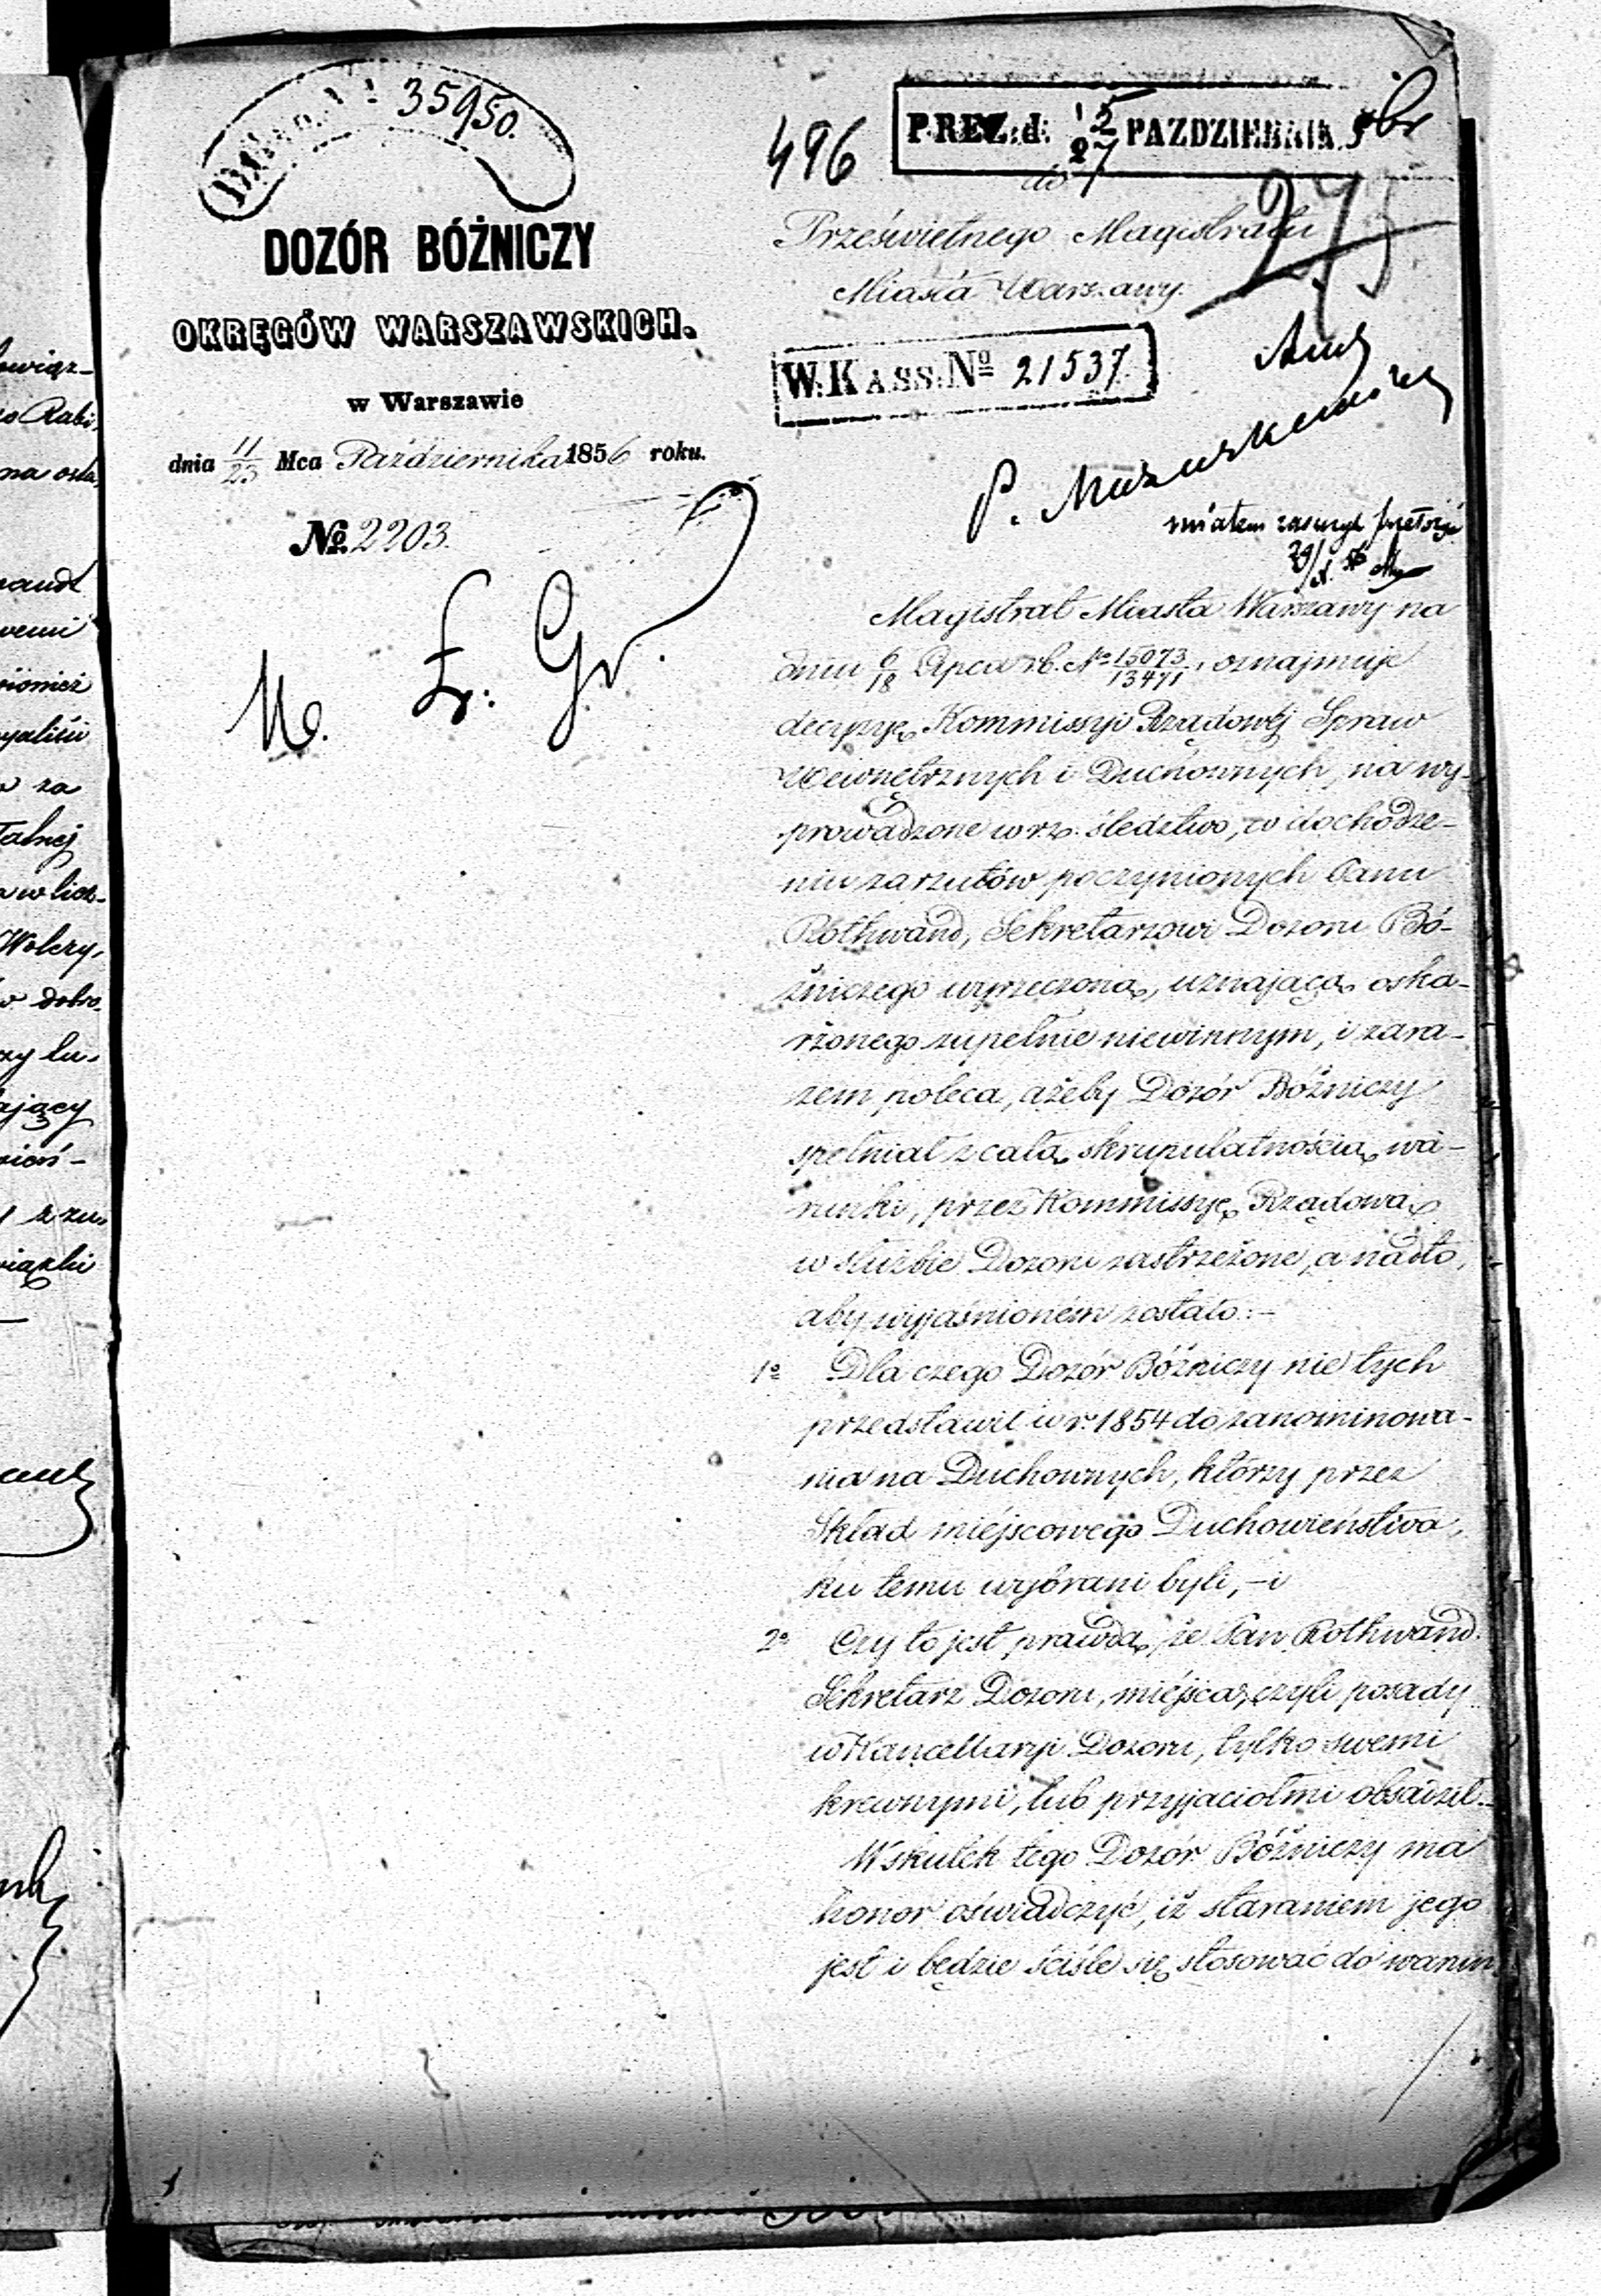 35950.
DOZÓR BÓŻNICZY
OKRĘGÓW WARSZAWSKICH.
w Warszawie
dnia 11/23 Mca Października 1856 roku.
№ 2203.
496
PREZ: d: 15/27 PAZDZIERNIK. 56
do
Prześwietnego Magistratu
Miasta Warszawy.
W. KASS: No 21537
miałem zaszczyt
29/X. 56
Magistrat Miasta Warszawy na
dniu 6/18 rb. No 15073/13471, oznajmuje
decyzyę Kommissyi Rządowéj Spraw
Wewnętrznych i Duchownych, na wy-
prowadzone w rz. śledztwo, w dochodze-
niu zarzutów poczynionych Panu
Rothwand, Sekretarzowi Dozoru Bó-
żniczego wyrzeczoną, uznającą oska-
rżonego zupełnie niewinnym, i zara-
zem poleca, ażeby Dozór Bóżniczy
spełniał z całą skrupulatnością wa-
runki, przez Kommissyę Rządową
w służbie Dozoru zastrzeżone, a nadto,
aby wyjaśnioném zostało:-
1o Dla czego Dozór Bóżniczy nie tych
przedstawił w r. 1854 do zanominowa-
nia na Duchownych, którzy przez
Skład miéjscowego Duchowieństwa,
ku temu wybrani byli, - i
2o Czy to jest prawdą, że Pan Rothwand
Sekretarz Dozoru, miéjsca, czyli posady
w Kancellaryi Dozoru, tylko swemi
krewnymi, lub przyjaciołmi obsadził.-
Wskutek tego Dozór Bóżniczy ma
honor oświadczyć, iż staraniem jego
jest i będzie ściśle się stosować do warun